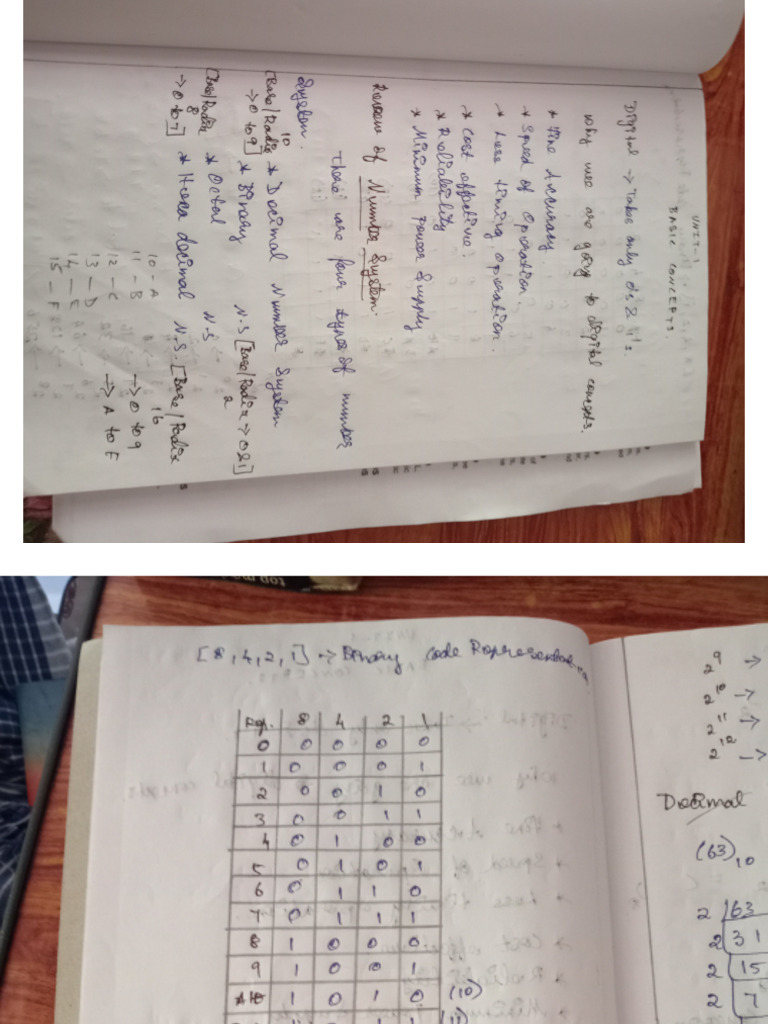 UNIT-1
BASIC CONCEPTS.
Digital → Takes only 0's & 1's.
Why we are going to digital concepts.
* Fine Accuracy
* Speed of Operation.
* Less timing Operation.
* Cost effective.
* Reliability
* Minimum Power Supply
Review of Number System.
There are four types of number
System.
[Base/Radix 10 → 0 to 9] * Decimal Number System
* Binary N.S [Base/Radix 2 → 0 & 1]
[Base/Radix 8 → 0 to 7] * Octal N.S
* Hexa decimal N.S. [Base/Radix 16
→ 0 to 9
→ A to F
10 - A
11 - B
12 - C
13 - D
14 - E
15 - F
[8, 4, 2, 1] → Binary Code Representation
8 4 2 1
0 0 0 0 0
1 0 0 0 1
2 0 0 1 0
3 0 0 1 1
4 0 1 0 0
5 0 1 0 1
6 0 1 1 0
7 0 1 1 1
8 1 0 0 0
9 1 0 0 1
1 0 1 0 (10)
(11)
2^9 →
2^10 →
2^11 →
2^12 →
Decimal
(63)10
2 63
2 31
2 15
2 7